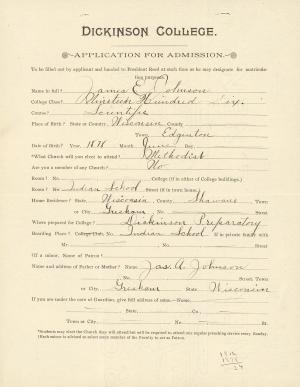 DICKINSON COLLEGE.
APPLICATION FOR ADMISSION.
To be filled out by applicant and handed to President Reed at such time as he may designate for matriculation purposes.
Name in full? James E. Johnson
College Class? Nineteen Hundred Six.
Course? Scientific
Place of Birth? State or Country, Wisconsin County
Town Edginton
Date of Birth? Year, 1878 Month June Day
*What Church will you elect to attend? Methodist
Are you a member of any Church? No
Room? No. College (if in either of College buildings).
Room? No Indian School Street (if in town house).
Home Residence? State Wisconsin County, Shawano Town
or City, Gresham, No. Street
Where prepared for College? Dickinson Preparatory
Boarding Place? College Club, No. Indian School If in private family with
Mr. No. Street
(If a minor, Name of Patron?
Name and address of Father or Mother? Name Jas. A. Johnson
No. Street, Town
or City, Gresham State Wisconsin
If you are under the care of Guardian, give full address of same.—Name
State, Co.
Town or City, No. St.
*Students may elect the Church they will attend but will be required to attend one regular preaching service every Sunday.
(Each minor is advised to select some member of the Faculty to act as Patron.
1878
24